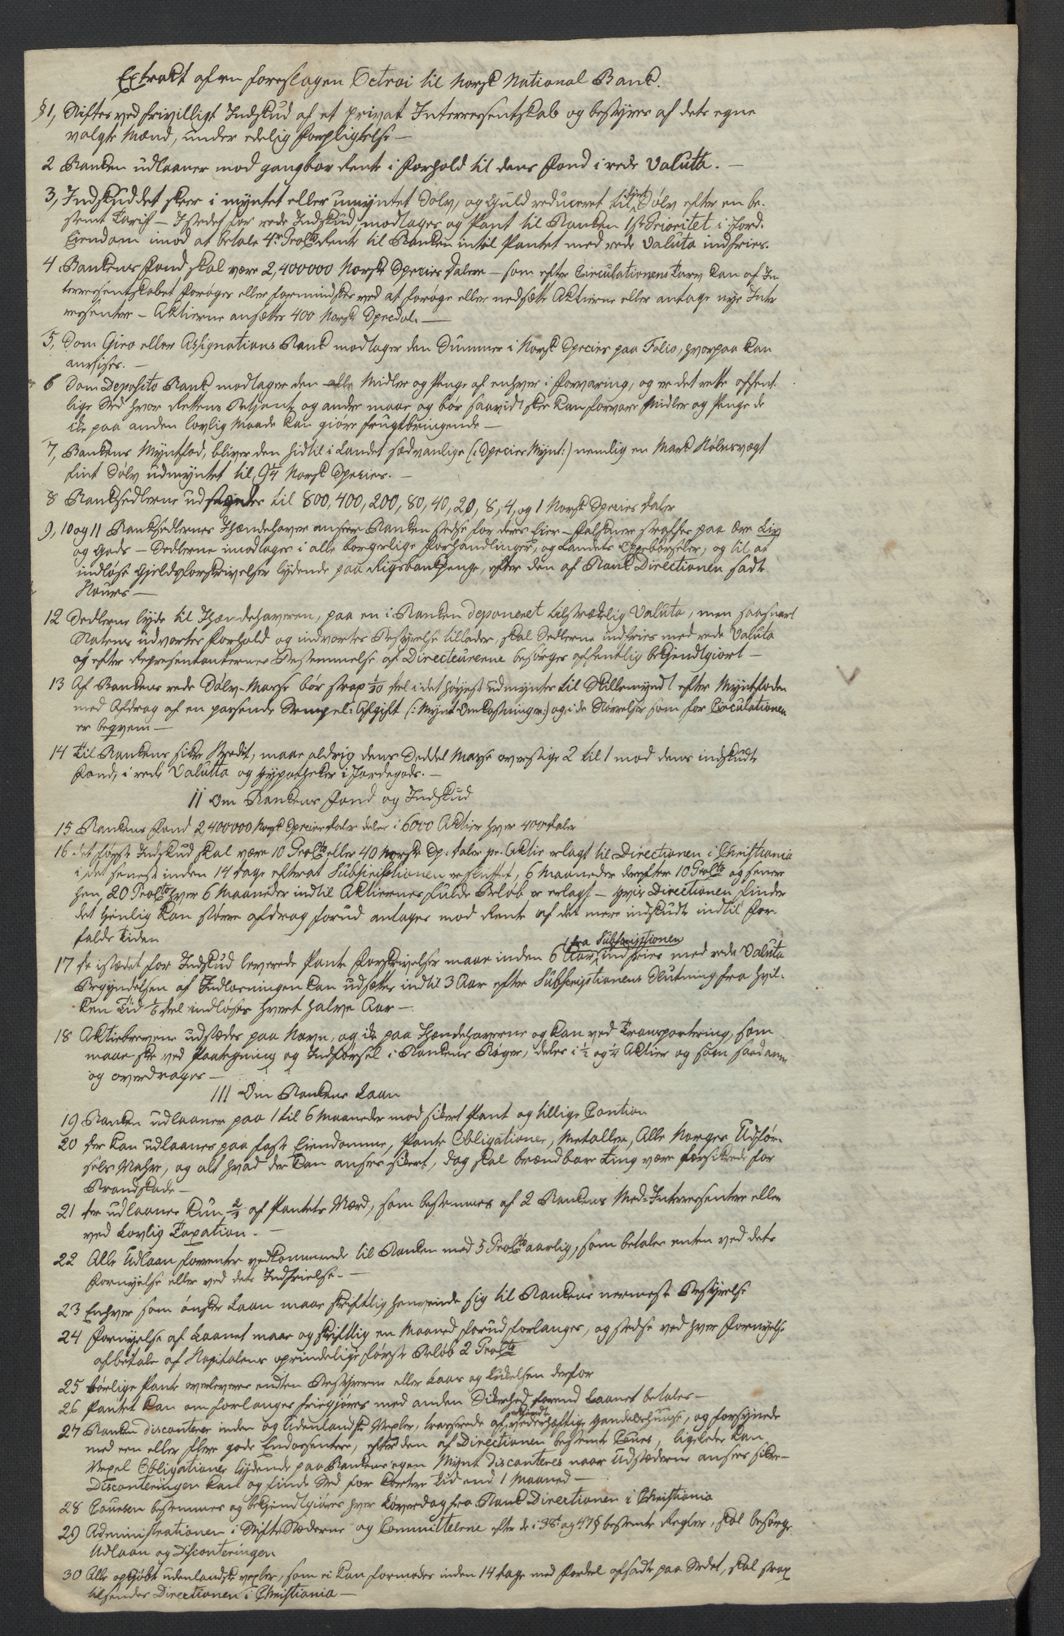 Extrakt af en foreslagen Octroi til Norsk National Bank.
§1, Stiftes ved frivilligt Indskud af et privat Interressentskab og bestyres af dets egne
valgte Mænd, under edelig Forpligtelse —
2 Banken udlaaner mod gangbar Rente i Forhold til dens Fond i rede Valuta. —
3, Indskuddet skeer i myntet eller umyntet Sølv, og Guld reduceret til Sølv efter en be-
stemt Tarif — Istedet for rede Indskud, modtages og Pant til Banken 1ste Prioritet i Jord-
Eiendom imod at betale 4 Procto Rente til Banken intil Pantet med rede Valuta indfries.
4 Bankens Fond skal være 2,400000 Norske Species Dalere — som efter Circulationens Tarv kan af In-
terressentskabet forøges eller formindskes ved at forøge eller nedsætte Aktierne eller antage nye Inte
ressenter — Aktierne ansættes 400 Norsk Specdal. —
5, Som Giro eller Assignations Bank modtager den Summer i Norsk Species paa Folio, hvorpaa kan
anvises. —
6 Som Deposito Bank modtager den alle Midler og Penge af enhver i Forvaring, og er det rette offent-
lige Sted hvor Rettens Betjente og andre maae og bør saavidt skee kan forvare Midler og Penge de
ike paa anden lovlig Maade kan giøre frugtbringende —
7, Bankens Myntfod, bliver den hidtil i Landet sædvanlige (: Species Mynt :) nemlig en Mark Kølnsvægt
fint Sølv udmyntet til 9¼ Norsk Species. —
8 Banksedlerne udstædes til 800, 400, 200, 80, 40, 20, 8, 4, og 1 Norsk Species Daler
9, 10 og 11 Banksedlernes Ihændehaver ansees Banken stedse for deres Eier — Falsknere straffes paa Ære Liv
og Gods — Sedlerne modtages i alle borgerlige Forhandlinger, og Landets Oppebørseler, og til at
indløse Gjeldsforskrivelser lydende paa Rigsbankpenge, efter den af Bank Directionen sadte
Kours —
12 Sedlerne lyde til Ihændehaveren, paa en i Banken deponeret tilstrækelig Valuta, men saasnart
Statens udvortes Forhold og indvortes Bestyrelse tillader, skal Sedlerne indfries med rede Valuta
og efter Representanternes Bestemmelse af Directeurerne besørges offentlig bekjendtgiort —
13 Af Bankens rede Sølv-Masse bør strax 1/20 Deel i det høyeste udmyntes til Skillemyndt efter Myntfoden
med Afdrag af en passende Stempel-Afgift (: Mynt-Omkostninger :) og i de Størrelser som for Circulationen
er beqvem —
14 Til Bankens sikre Kredit, maae aldrig dens Seddel Masse overstige 2 til 1 mod dens indskudte
Fond, i rede Valutta og Hypotheker i Jordegods. —
II Om Bankens Fond og Indskud
15 Bankens Fond 2400000 Norsk Species Daler deles i 6000 Aktier hver 400 Daler
16 det første Indskud skal være 10 Procto eller 40 Norsk Sp. Daler pr. Aktie erlagt til Directionen i Christiania
i det seneste inden 14 Dage efterat Subscriptionen er sluttet, 6 Maaneder derefter 10 Procto og senere
hen, 20 Procto hver 6 Maaneder indtil Aktiernes fulde Beløb er erlagt — Hvis Directionen finder
det tienlig kan større afdrag forud antages mod Rente af det mere indskudte indtil For-
falds tiden
fra Subscriptionen
17 De istædet for Indskud leverede Pante Forskrivelser maae inden 6 Aar, indfries med rede Valuta
Begyndelsen af Indløsningen kan udsættes indtil 3 Aar efter Subscriptionens Slutning fra hvil-
ken Tid 1/6 Deel indløses hvert halve Aar —
18 Aktiebrevene udstædes paa Navn, og ike paa Ihændehaverne og kan ved Transportering, som
maae skee ved Paategning og Indførsel i Bankens Bøger, deles i ½ og ¼ Aktier og som saadanne
og overdrages —
III Om Bankens Laan
19 Banken udlaaner paa 1 til 6 Maaneder mod sikert Pant og tillige Caution
20 Der kan udlaanes paa fast Eiendomme, Pante Obligationer, Metaller, Alle Norges Udfør-
sels Vahre, og alt hvad der kan ansees sikert, dog skal brændbare Ting være forsikrede for
Brandskade —
21 Der udlaanes kun 2/3 af Pantets Værd, som bestemmes af 2 Bankens Med-Interressentere eller
ved Lovlig Taxation. —
22 Alle Udlaan forrentes vedkommende til Banken med 5 Procto aarlig, som betales enten ved dets
Fornyelse eller ved dets Indfrielse. —
23 Enhver som ønsker Laan maae skriftlig henvende sig til Bankens nermeste Bestyrelse
24 Fornyelse af Laanet maae og skriftlig en Maaned forud forlanges, og stedse ved hver Fornyelse
afbetale af Kapitalens oprindelige første Beløb 2 Procto
25 Rørlige Pante overleveres endten Bestyrerne eller Laas og Lukelsen derfor
26 Pantet kan om forlanges frigjøres med anden Sikerhed forend Laanet betales —
27 Banken disconterer inden og udenlandske Vexler, trasserede af vederhæftige Handelshuuse, og forsynede
med een eller flere gode Endossenter, efter den af Directionen bestemte Cours, ligeledes kan
Vexel Obligationer lydende paa Bankens egen Mynt disconteres naar Udstæderne ansees sikre —
Disconteringen kan ei finde Sted for kortere Tid end 1 Maaned —
28 Coursen bestemmes og bekjendtgiøres hver Løverdag fra Bank Directionen i Christiania
29 Administrationen i Stifts Stæderne og Committeerne efter de i 38te og 47 § bestemte Regler, skal besørge
Udlaan og Disconteringen
30 Alle opkjøbte udenlandske Vexler, som ei kan formodes inden 14 Dage med Fordel afsadt paa Stedet, skal strax
tilsendes Directionen i Christiania —